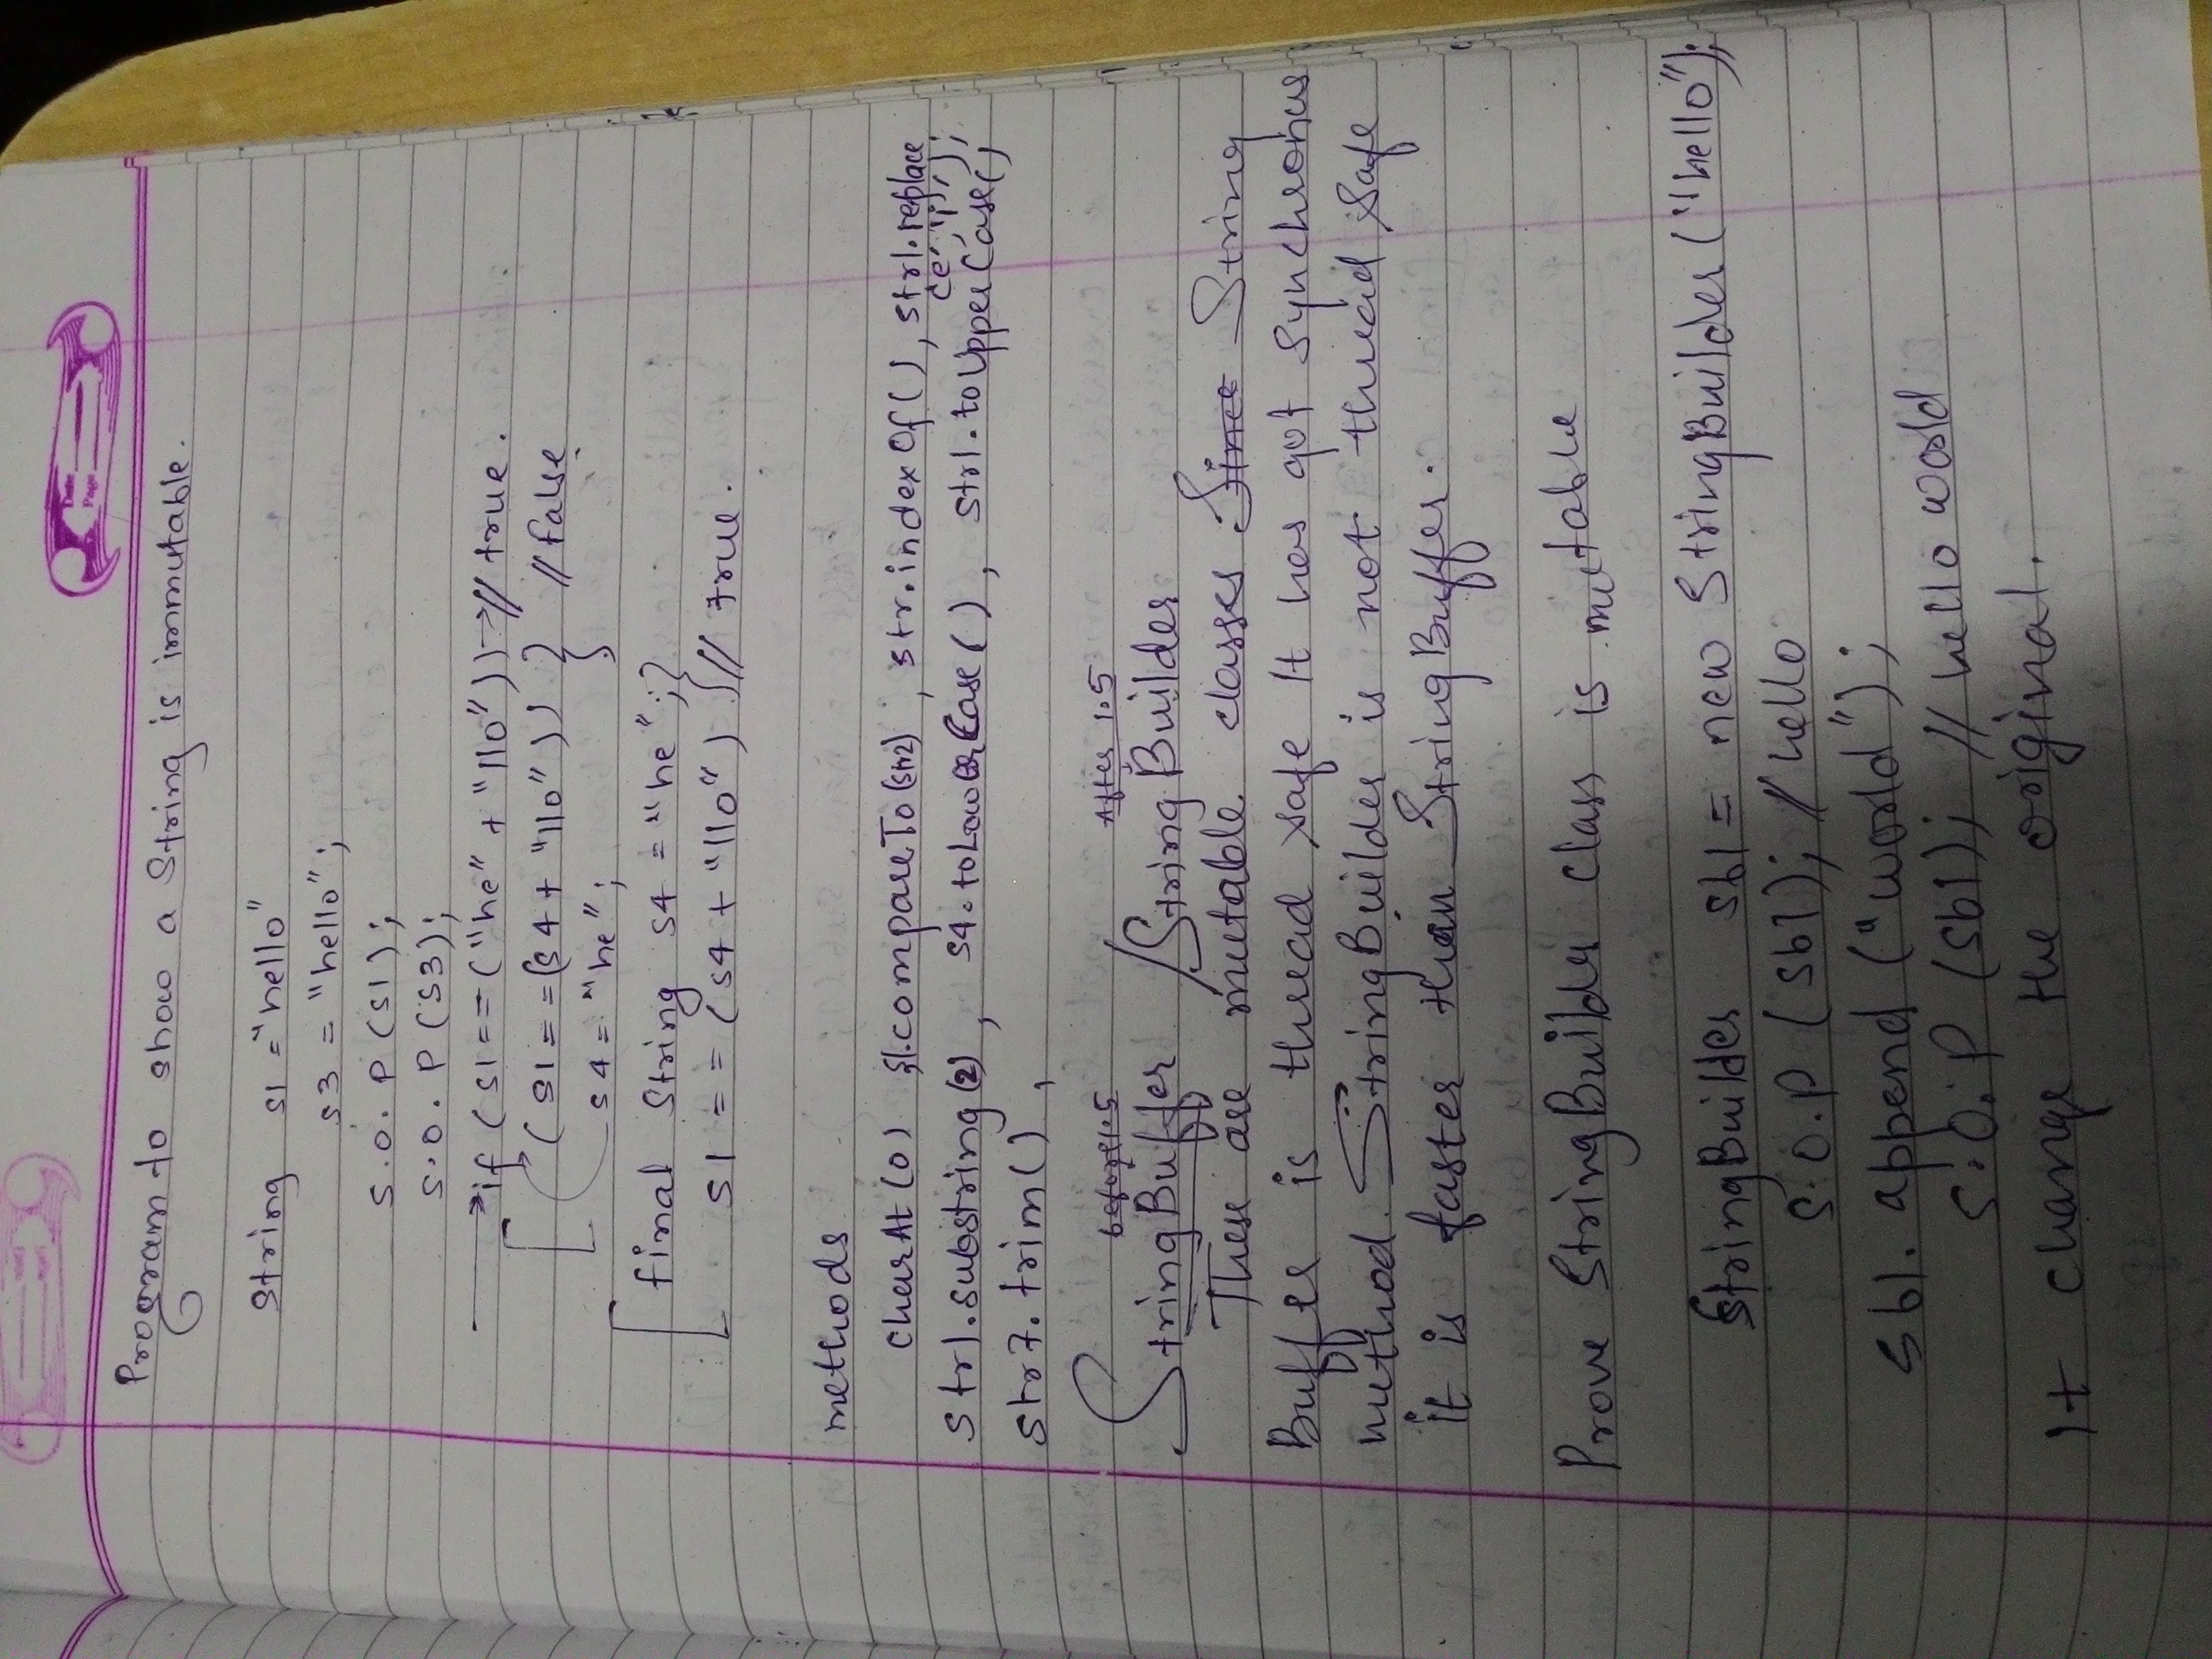 Date:
Page
Program to show a String is immutable.
String s1 = "hello"
s3 = "hello";
S.O.P(s1);
S.O.P(s3);
→if (s1==("he" + "llo"))→// true.
(s1==(s4 + "llo")) } // false
s4 = "he"; }
final String s4 = "he"; }
s1 == (s4 + "llo") } // true.
methods
charAt(0) s1.compareTo(str2), str.indexOf(), str1.replace
('e', 'i');
str1.substring(2), s4.toLowerCase(), str1.toUpperCase(),
str7.trim(),
before 1.5 After 1.5
StringBuffer / StringBuilder
These are mutable classes Since String
Buffer is thread safe It has got synchronus
method. StringBuilder is not thread safe
it is faster than StringBuffer.
Prove StringBuilder class is mutable
StringBuilder sb1 = new StringBuilder("hello");
S.O.P (sb1); // hello
sb1. append ("world");
S.O.P (sb1); // hello world
It change the original.